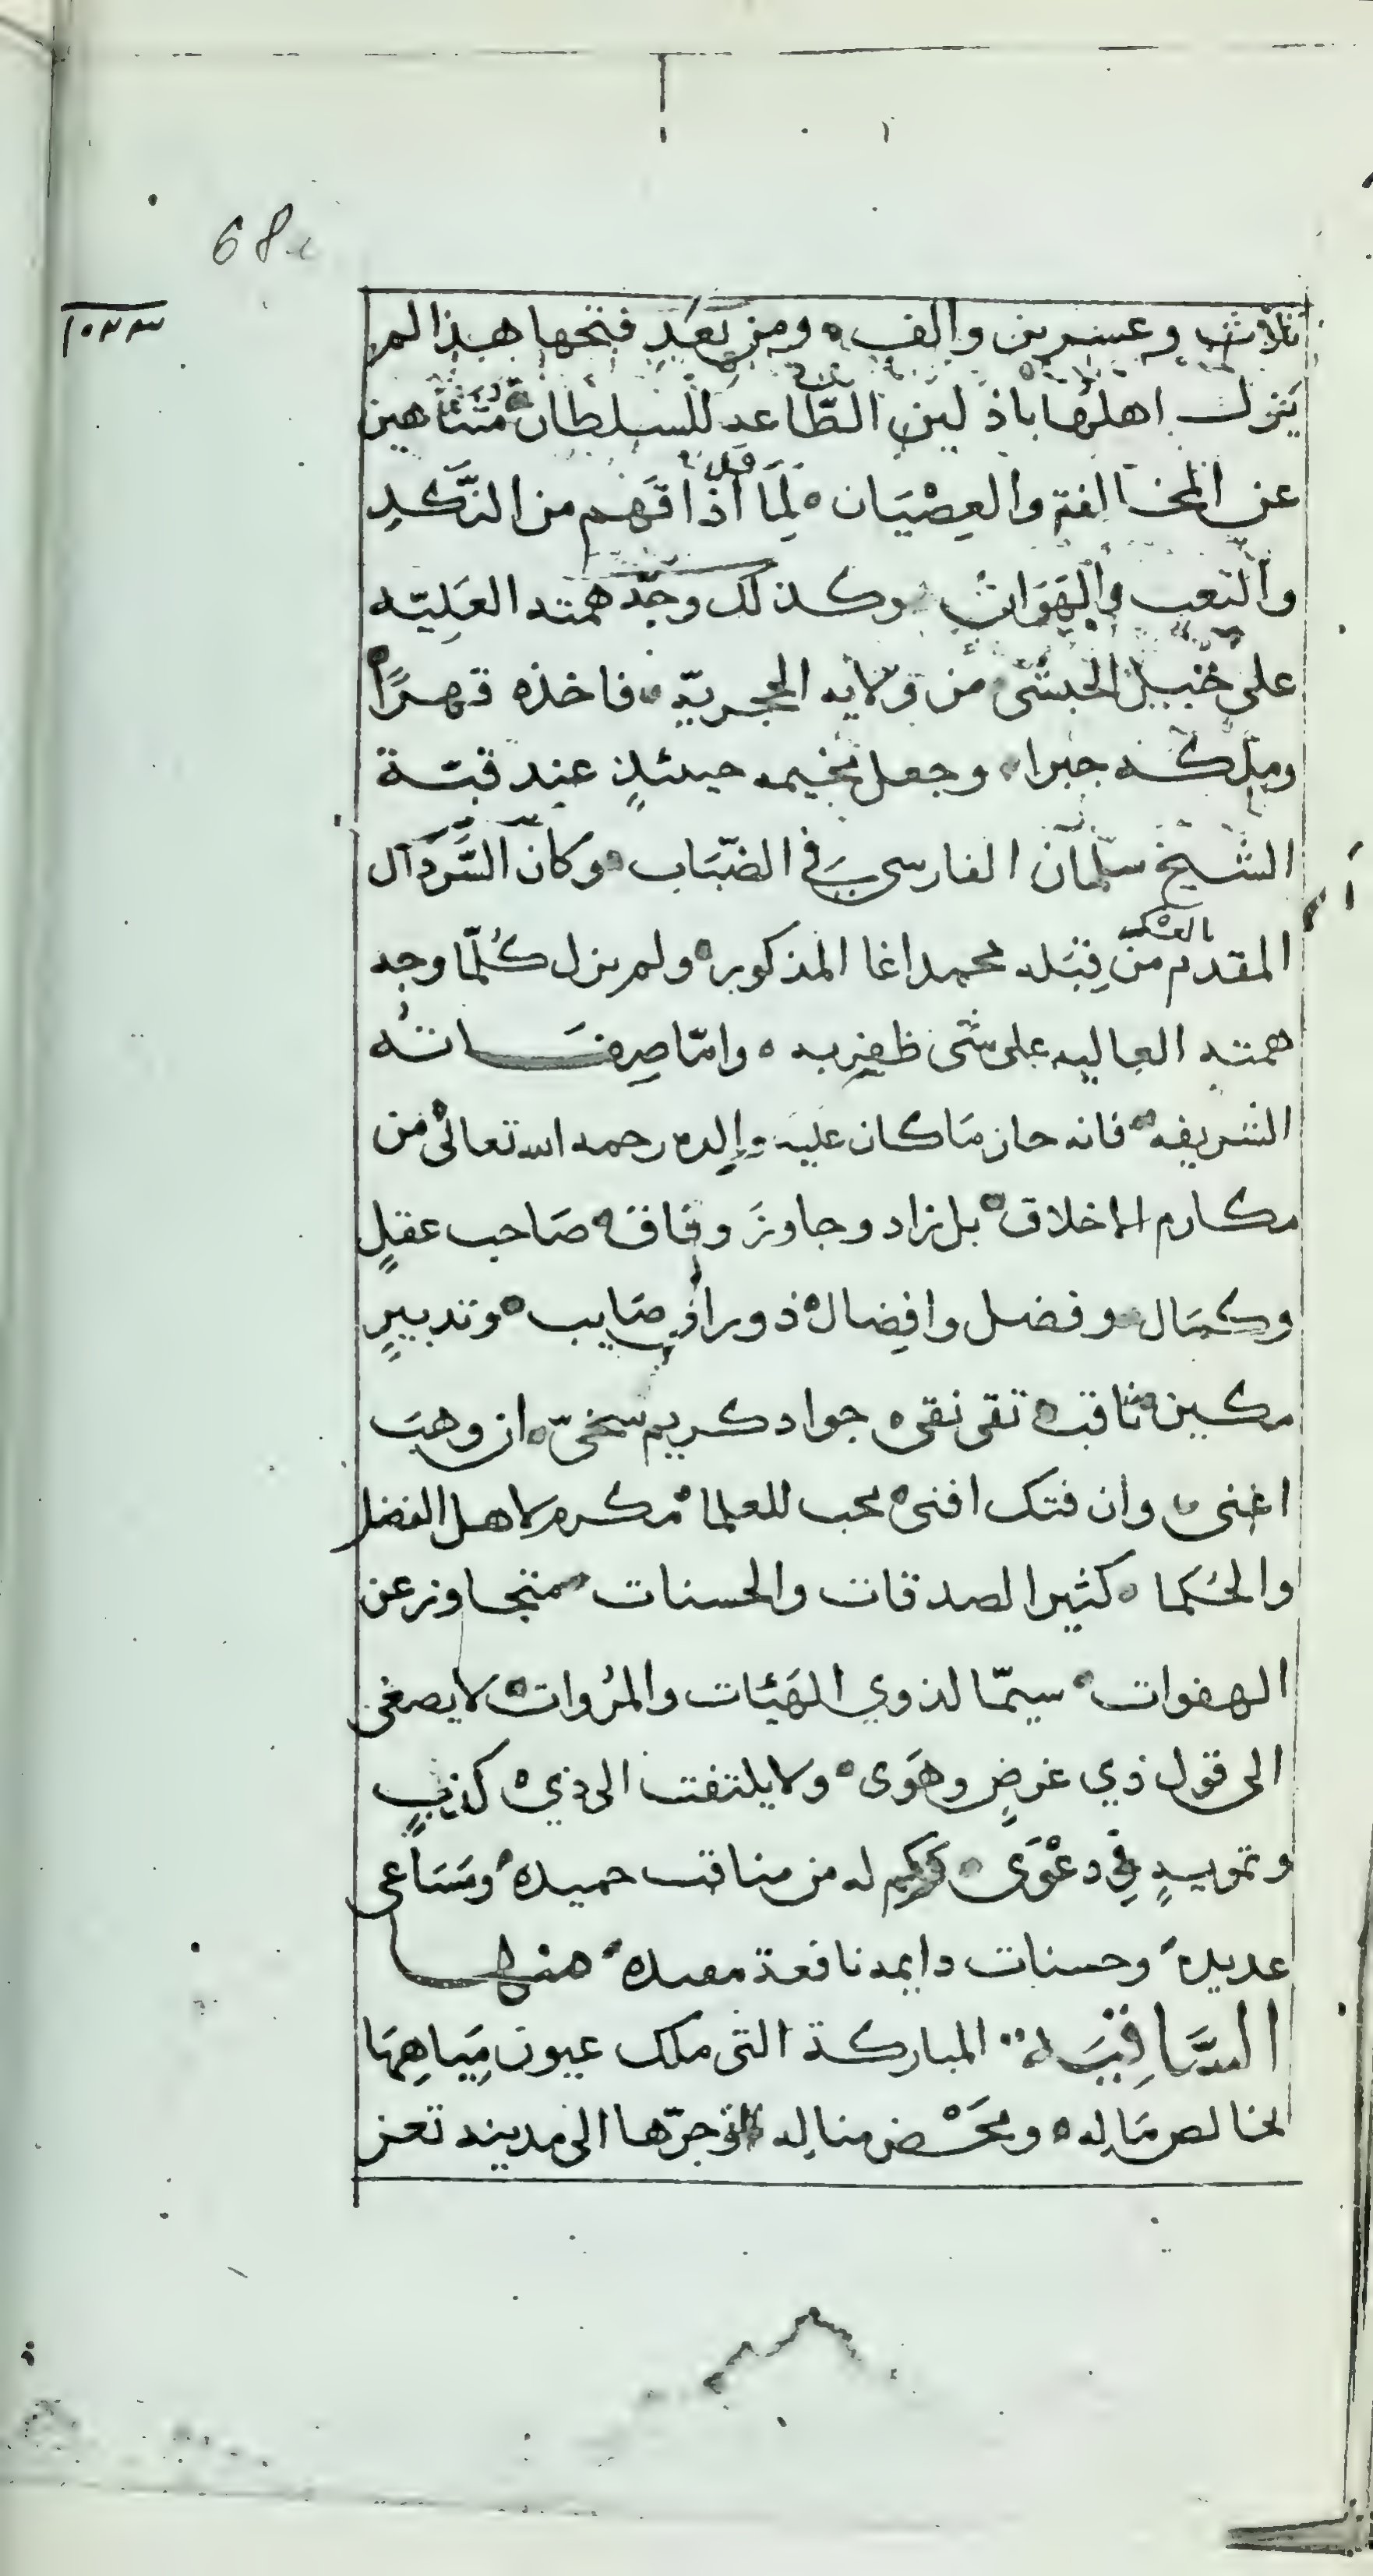 68
١٠٢٣
ثلاث وعشرين والف ومن بعد فتحها هذا لم
يزل اهلها باذلين الطاعه للسلطان متناهين
عن المخالفة والعِصْيَان لِمَا اذاقهم من النَّكَدِ
والتعب والهَوَان وكذلك وجّه همته العَلِيّه
على جبل الحبشي من ولايه الحجريّه فاخذه قهرًا
وملكه جبرا وجعل مخيمه حينئذٍ عند قبّة
الشيخ سلمان الفارسي في الضبَاب وكان السَّردَال
المقدم بالعسكر من قِبَله محمد اغا المذكور ولم يزل كُلّما وجه
همته العاليه على شي ظفر به وامّا صِفَاته
الشريفه فانه حاز مَا كان عليه والده رحمه الله تعالى من
مكارم الاخلاق بل زاد وجاوزَ وفاقه صَاحب عقلٍ
وكمَال وفضل وافِضال ذو راي صَايب وتدبيرٍ
مكين ثاقب تقي نقي جواد كريم سخيّ ان وهبَ
اغنى وان فتك افنى محب للعلما مكرم لاهل الفضل
والحُكما كثير الصدقات والحسنات متجاوز عن
الهفوات سيمّا لذوي الهَيئات والمرُوات لا يصغى
الى قول ذي غرضٍ وهَوى ولا يلتفت الى ذي كذبٍ
وتمويهٍ في دعْوَى وكم له من مناقب حميده ومَسَاعى
عديده وحسنات دايمه نافعة مفيده منها
السَّاقِيَه المباركة التى ملك عيون مِيَاهِهَا
بخالص مَالِه ومحَض مناله وجرّها الى مدينه تعز